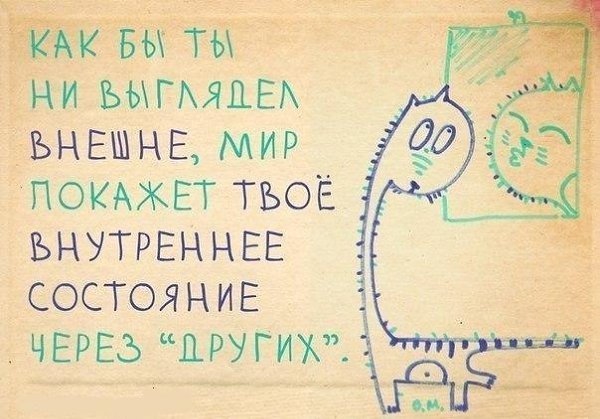 КАК БЫ ТЫ
НИ ВЫГЛЯДЕЛ
ВНЕШНЕ, МИР
ПОКАЖЕТ ТВОЁ
ВНУТРЕННЕЕ
СОСТОЯНИЕ
ЧЕРЕЗ "ДРУГИХ".
О.М.